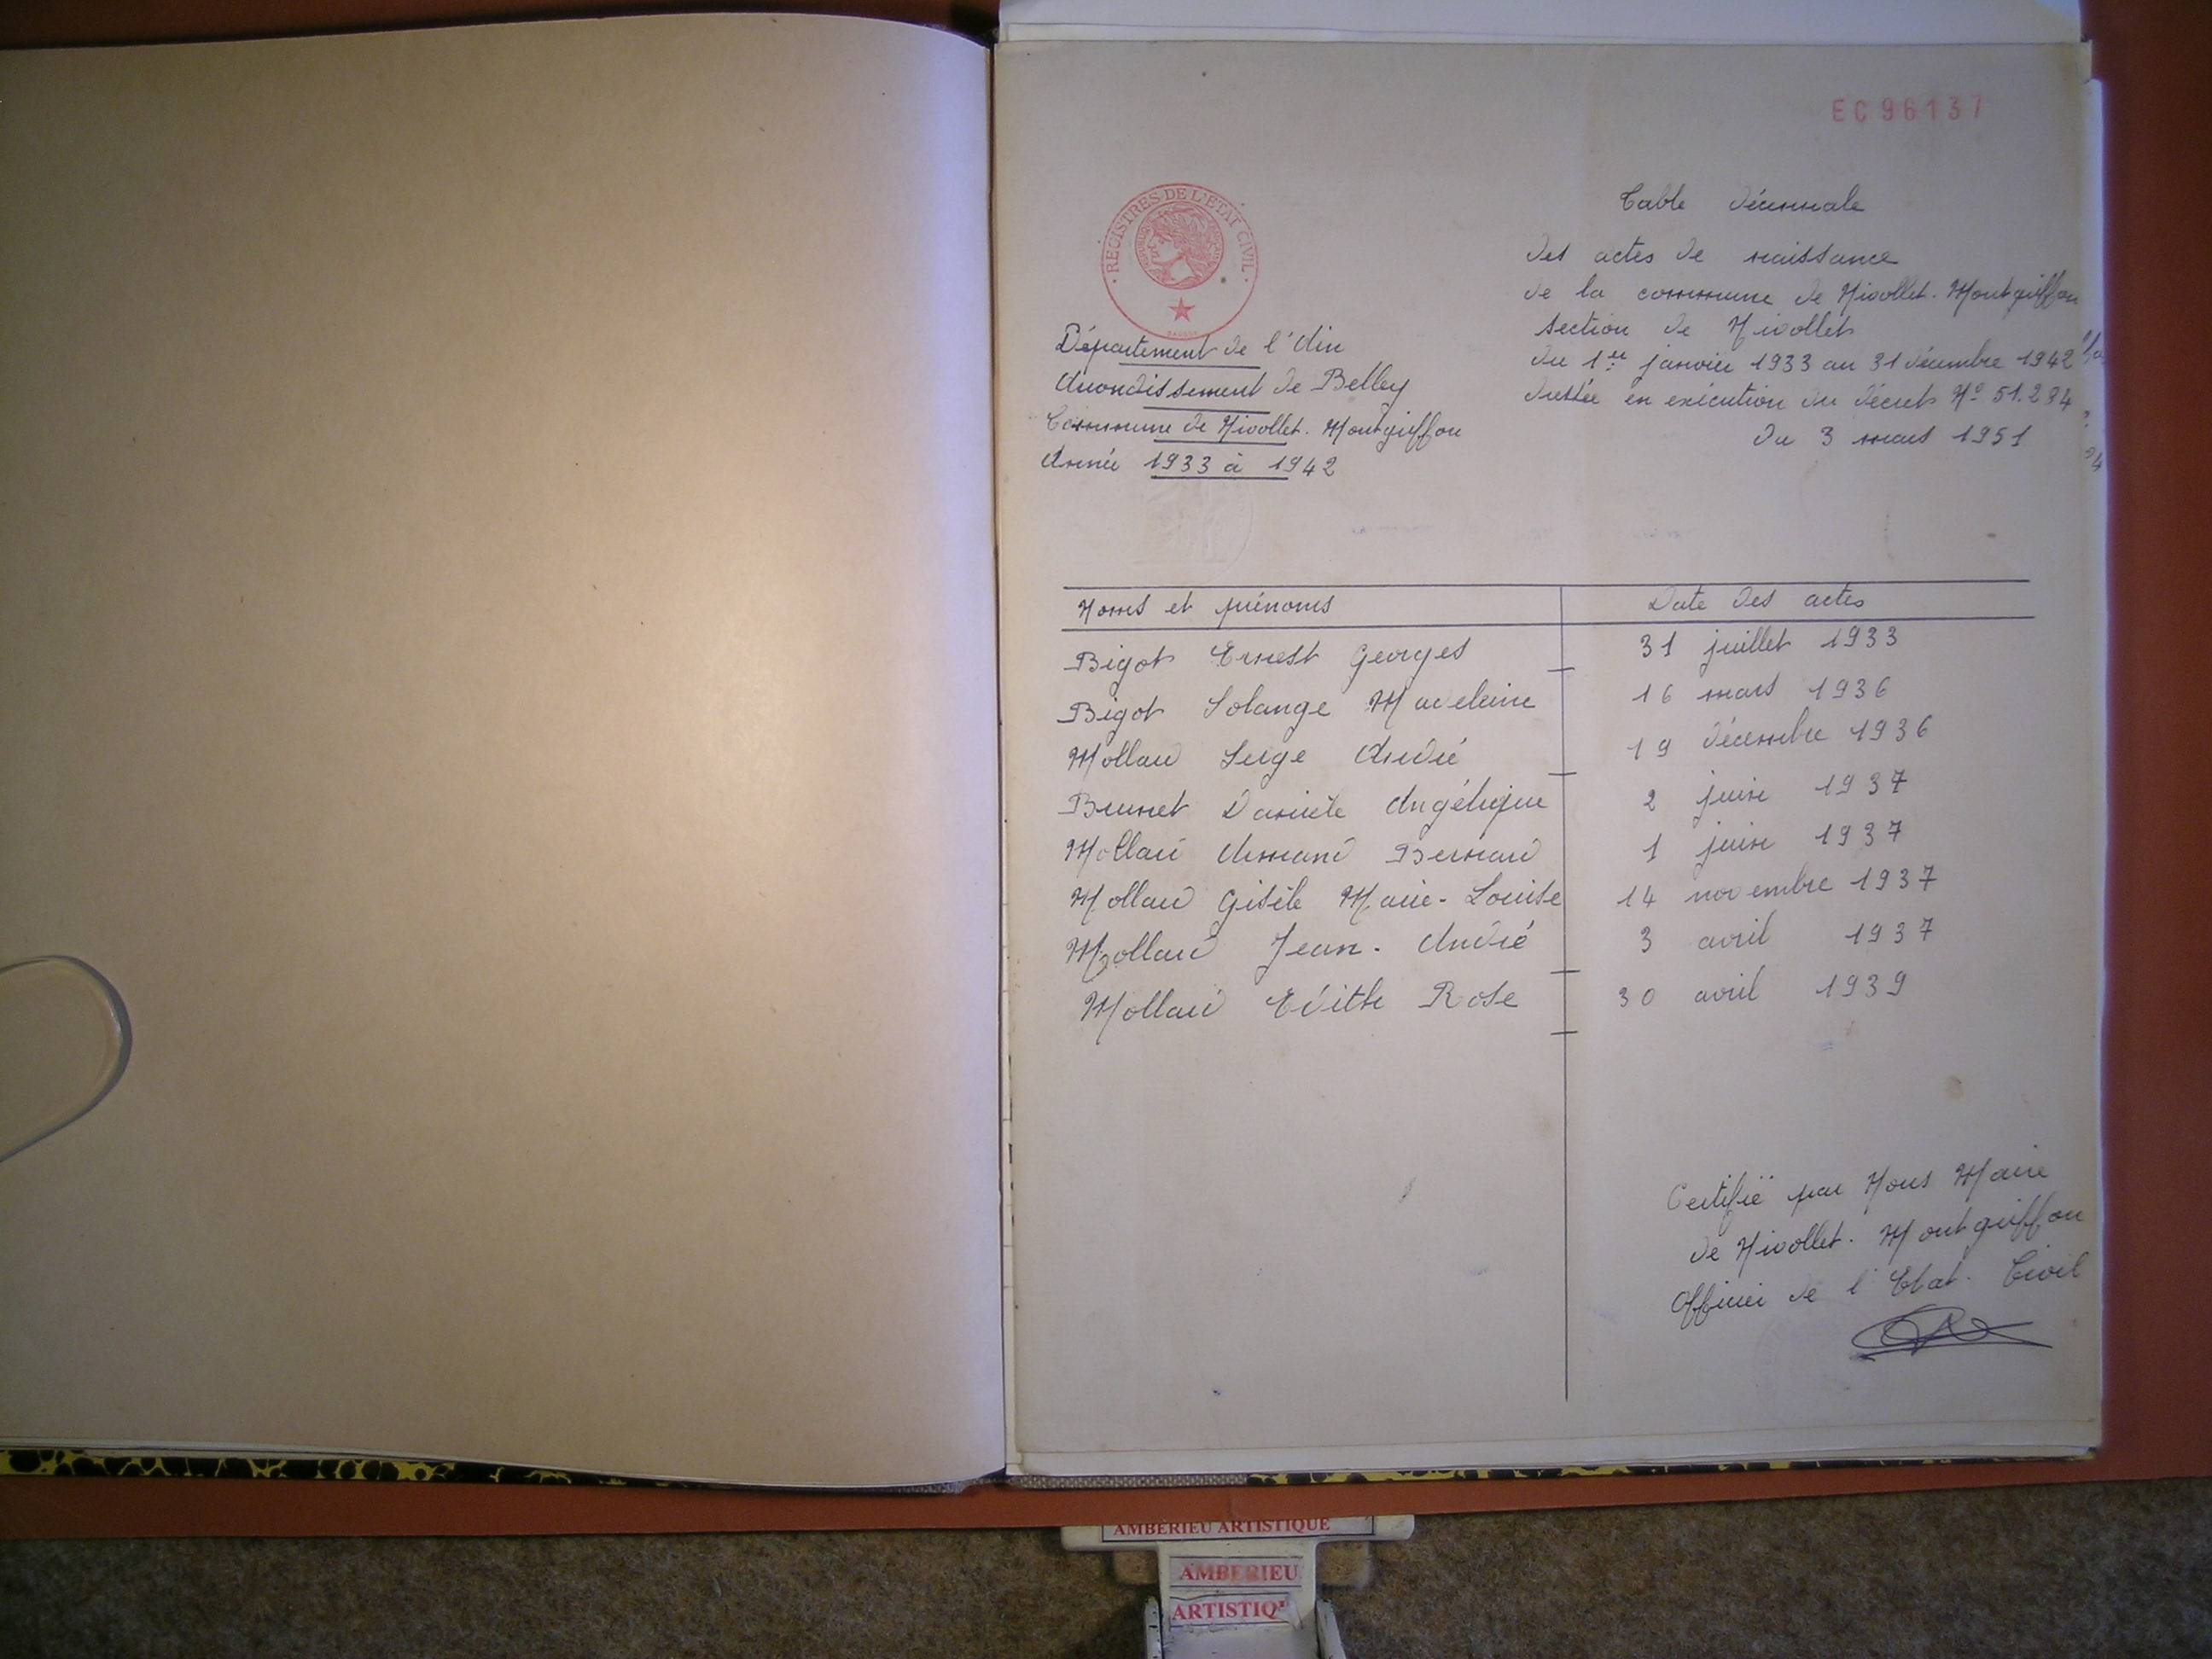 EC 96137
REGISTRES DE L'ETAT CIVIL
Département de l'Ain
Arrondissement de Belley
Commune de Nivollet. Montgriffon
Année 1933 à 1942
Table décennale
des actes de naissance
de la commune de Nivollet. Montgriffon
section de Nivollet
du 1er janvier 1933 au 31 décembre 1942
dressée en exécution du décret No 51.284
du 3 mars 1951
Noms et prénoms Date des actes
Bigot Ernest Georges 31 juillet 1933
Bigot Solange Madeleine 16 mars 1936
Mollard Serge André 19 décembre 1936
Brunet Danièle Angélique 2 juin 1937
Mollard Armand Bernard 1 juin 1937
Mollard Gisèle Marie-Louise 14 novembre 1937
Mollard Jean-André 3 avril 1937
Mollard Edith Rose 30 avril 1939
Certifié par Nous Maire
de Nivollet. Montgriffon
Officier de l'Etat-Civil
AMBERIEU ARTISTIQUE
AMBERIEU
ARTISTIQ